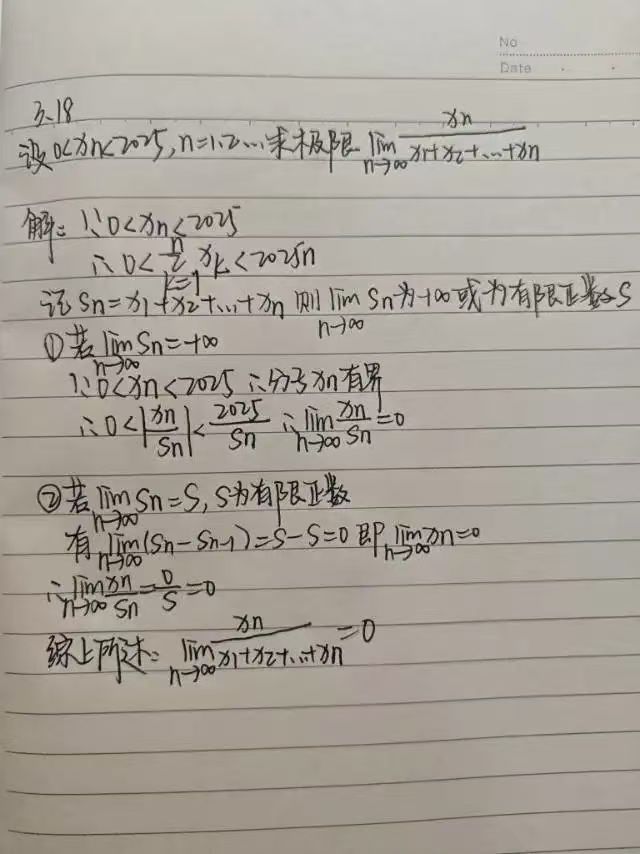 No
Date
3.18
设0<xn<2025,n=1.2…求极限 lim n→∞ xn/(x1+x2+…+xn)
解: ∵0<xn<2025
∴0<∑ n k=1 xk<2025n
记Sn=x1+x2+…+xn 则 lim n→∞ Sn为+∞或为有限正数S
①若lim n→∞ Sn=+∞
∵0<xn<2025 ∴分子xn有界
∴0<|xn/Sn|<2025/Sn ∴lim n→∞ xn/Sn=0
②若lim n→∞ Sn=S, S为有限正数
有lim n→∞ (Sn-Sn-1)=S-S=0 即lim n→∞ xn=0
∴lim n→∞ xn/Sn=0/S=0
综上所述: lim n→∞ xn/(x1+x2+…+xn)=0